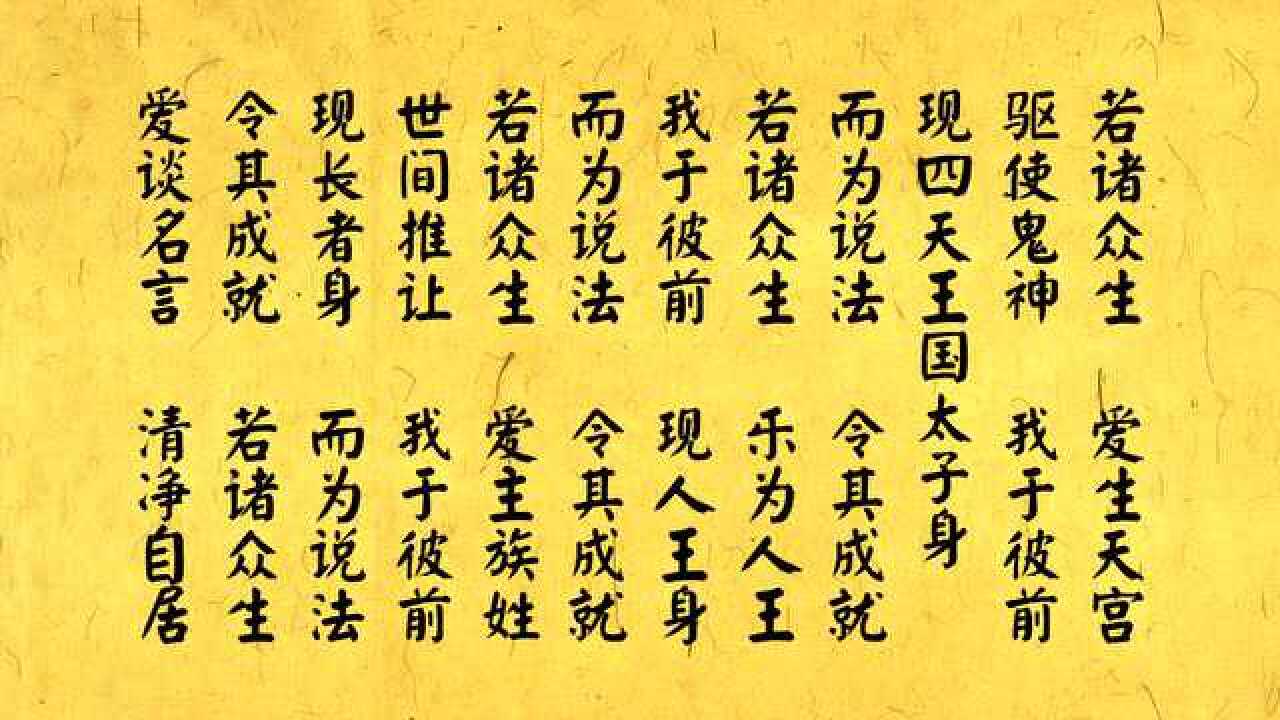 若诸众生 爱生天宫
驱使鬼神 我于彼前
现四天王国太子身
而为说法 令其成就
若诸众生 乐为人王
我于彼前 现人王身
而为说法 令其成就
若诸众生 爱主族姓
世间推让 我于彼前
现长者身 而为说法
令其成就 若诸众生
爱谈名言 清净自居